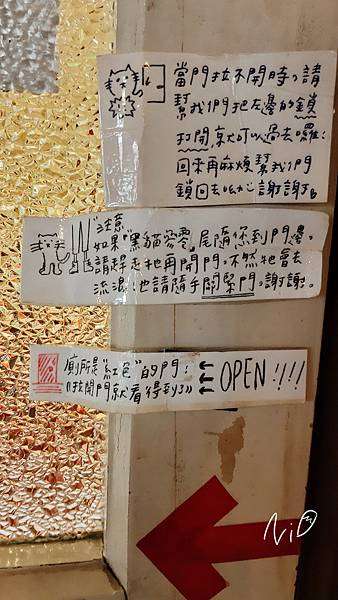 當門拉不開時，請
幫我們把左邊的鎖
打開就可以過去囉！
回來再麻煩幫我們
鎖回去呦！謝謝
"注意"
如果"黑貓零零"尾隨您到門邊，
請趕走牠再開門，不然牠會去
流浪；也請隨手關緊門。謝謝。
廁所是"紅色"的門！
《拉開門就看得到》
OPEN！！！！
NiD